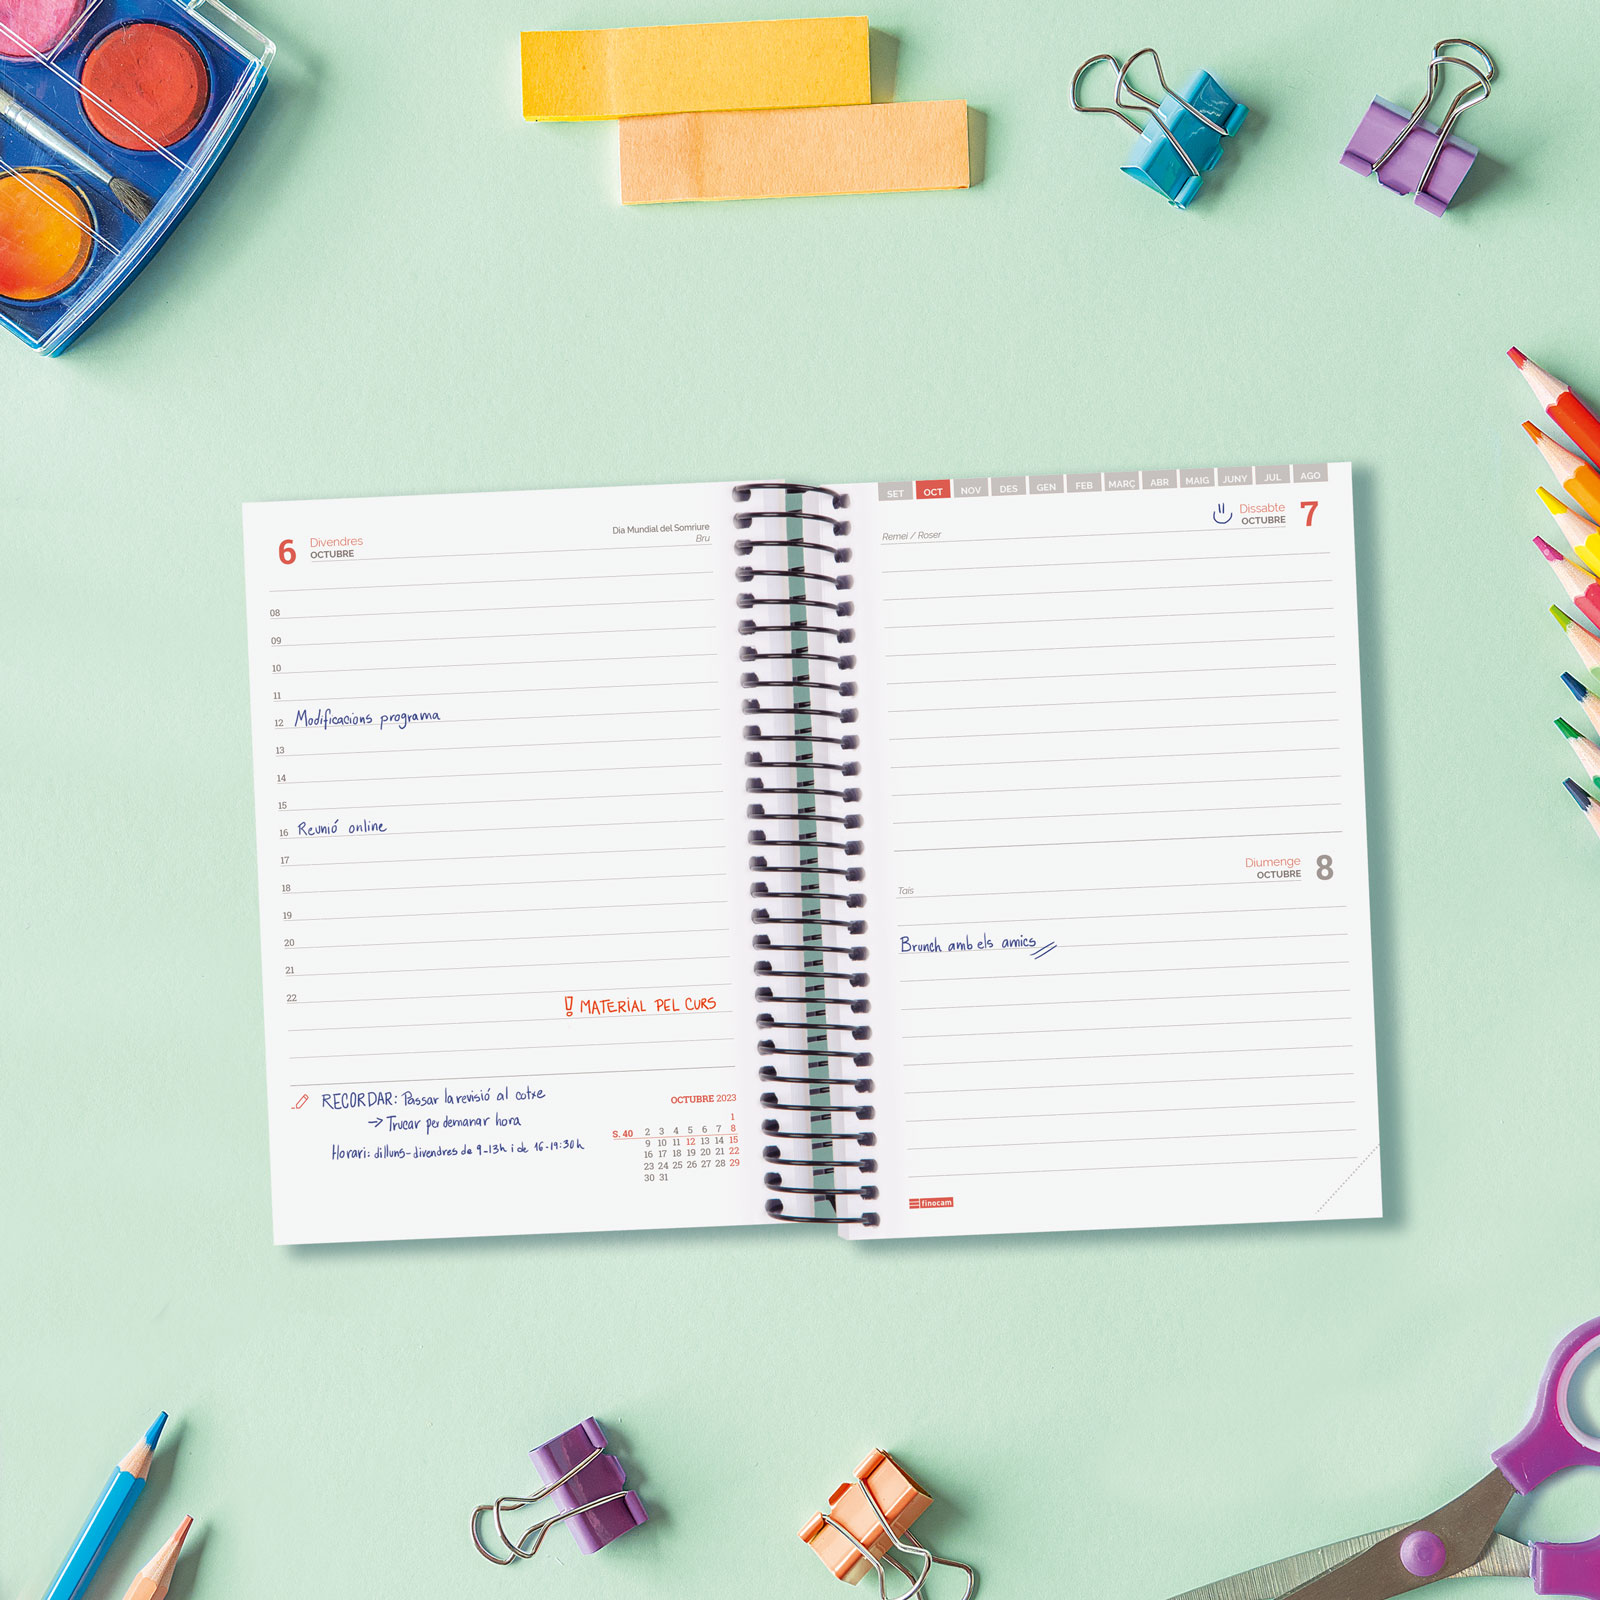 6 Divendres
OCTUBRE
Dia Mundial del Somriure
Bru
08
09
10
11
12 Modificacions programa
13
14
15
16 Reunió online
17
18
19
20
21
22
! MATERIAL PEL CURS
RECORDAR: Passar la revisió al cotxe
→ Trucar per demanar hora
Horari: dilluns-divendres de 9-13h i de 16-19:30h
OCTUBRE 2023
1
S. 40 2 3 4 5 6 7 8
9 10 11 12 13 14 15
16 17 18 19 20 21 22
23 24 25 26 27 28 29
30 31
SET OCT NOV DES GEN FEB MARÇ ABR MAIG JUNY JUL AGO
Dissabte 7
OCTUBRE
Remei / Roser
Diumenge 8
OCTUBRE
Tais
Brunch amb els amics
finocam